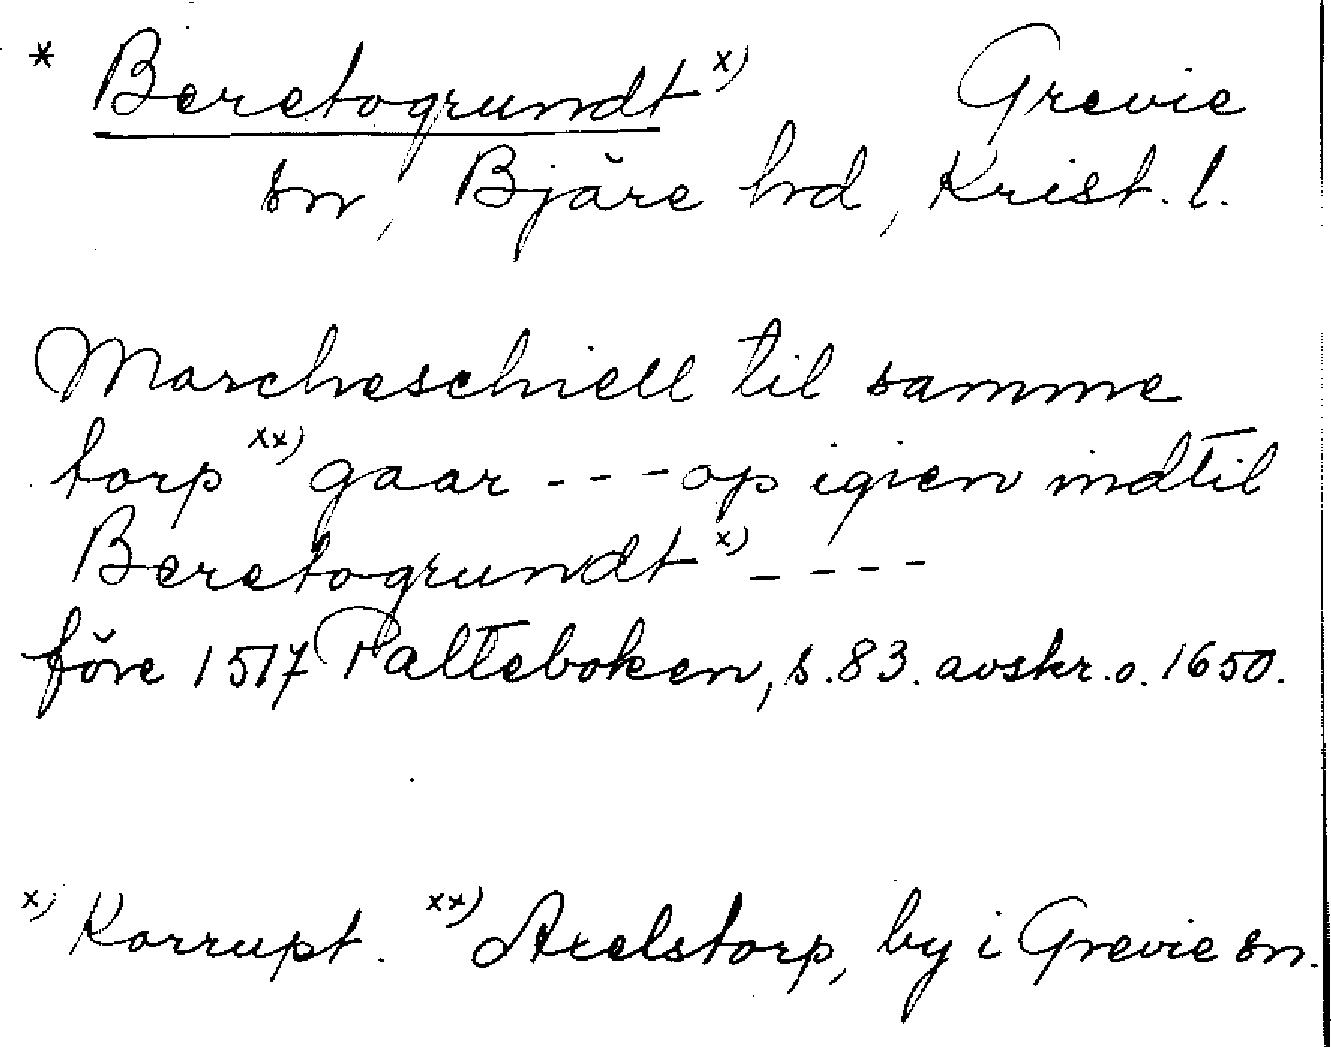 * Beretogrundt x) Grevie
sn, Bjäre hd, Krist. l.
Marcheschiell til samme
torp xx) gaar - - - op igien indtil
Beretogrundt x) - - - -
före 1517 Palteboken, s. 83. avskr. o. 1650.
x) Korrupt. xx) Axelstorp, by i Grevie sn.